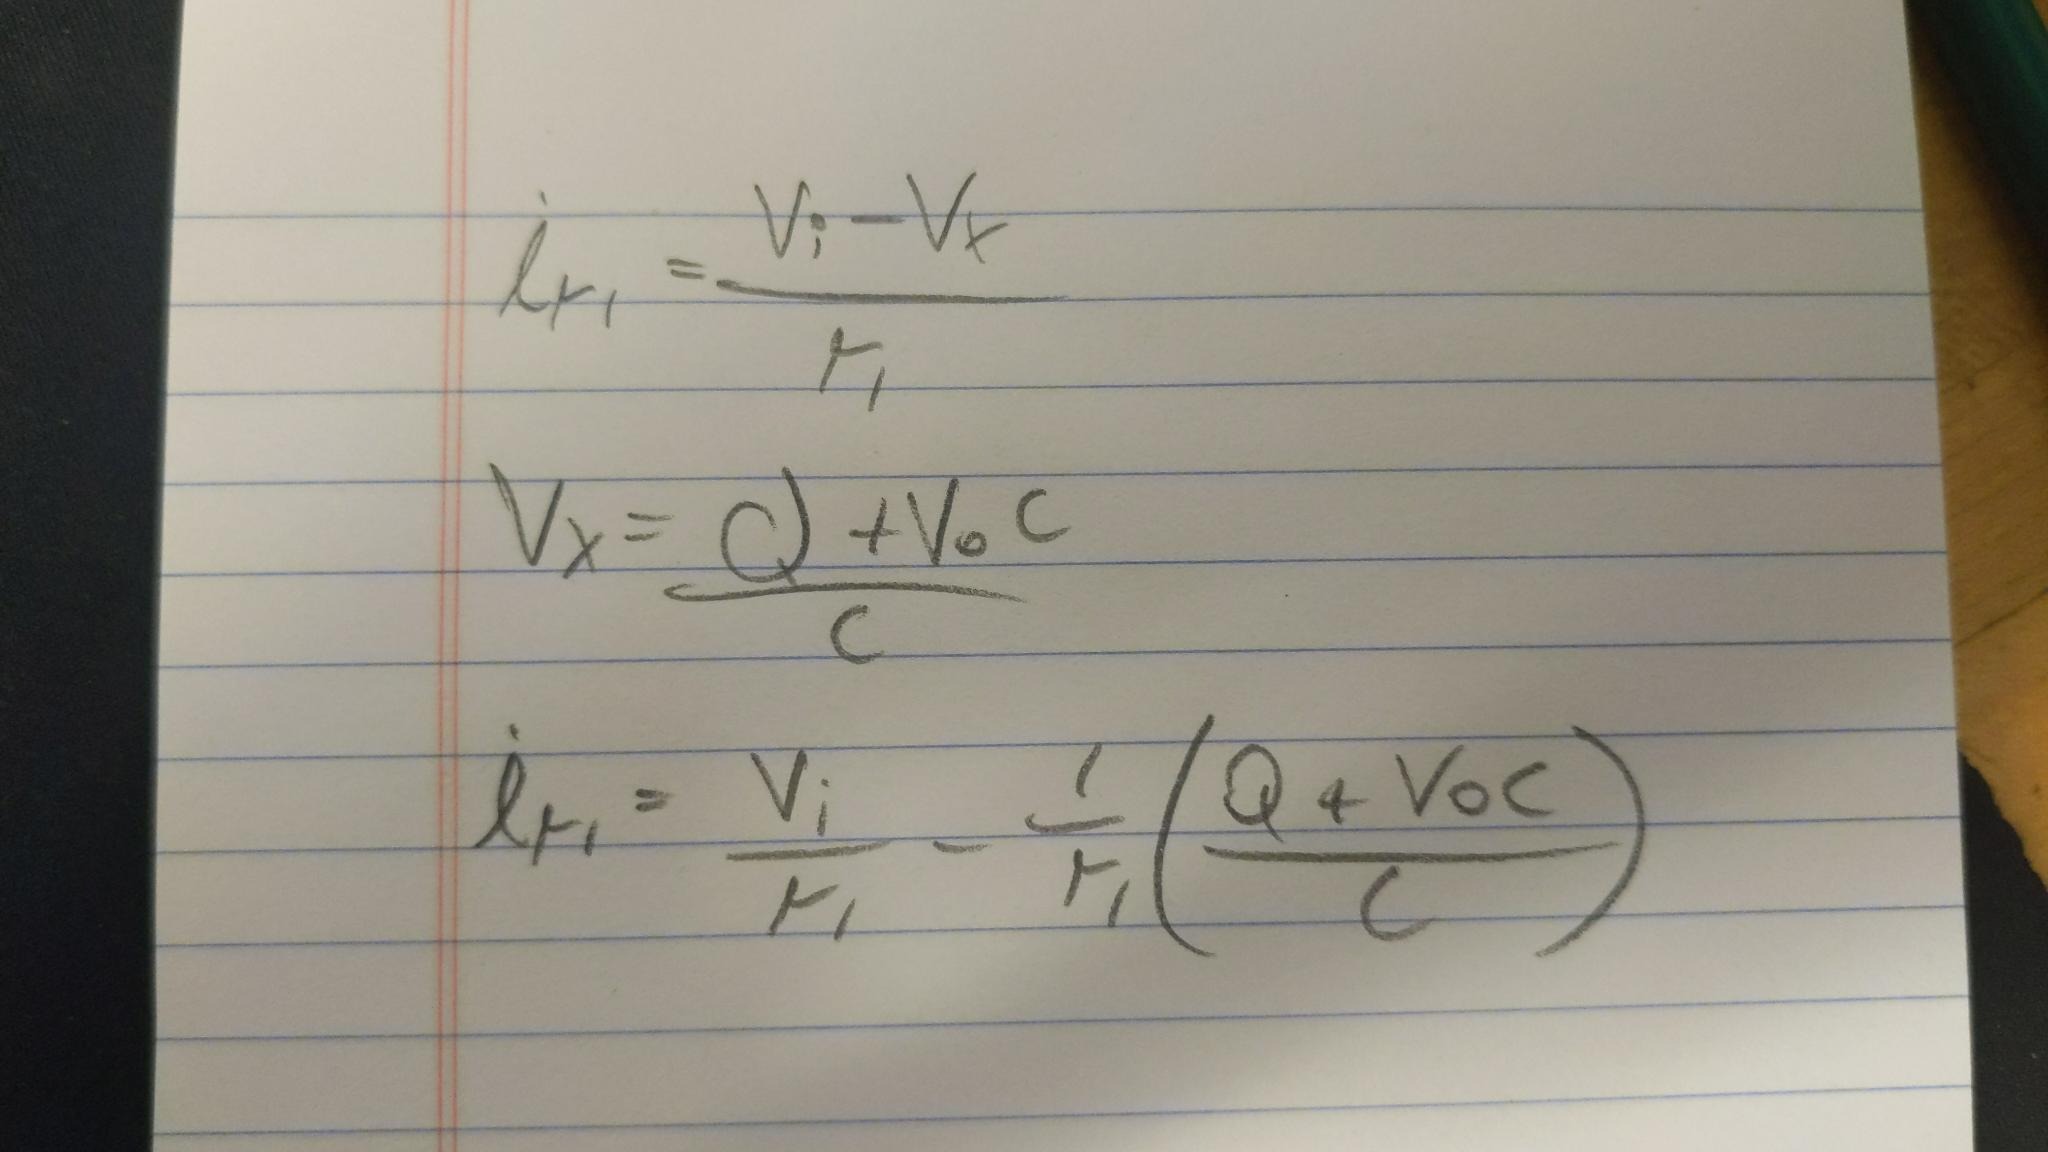 i_r₁ = (Vi − Vx) / r₁
Vx = (Q + VoC) / C
i_r₁ = Vi / r₁ − 1 / r₁ ((Q + VoC) / C)